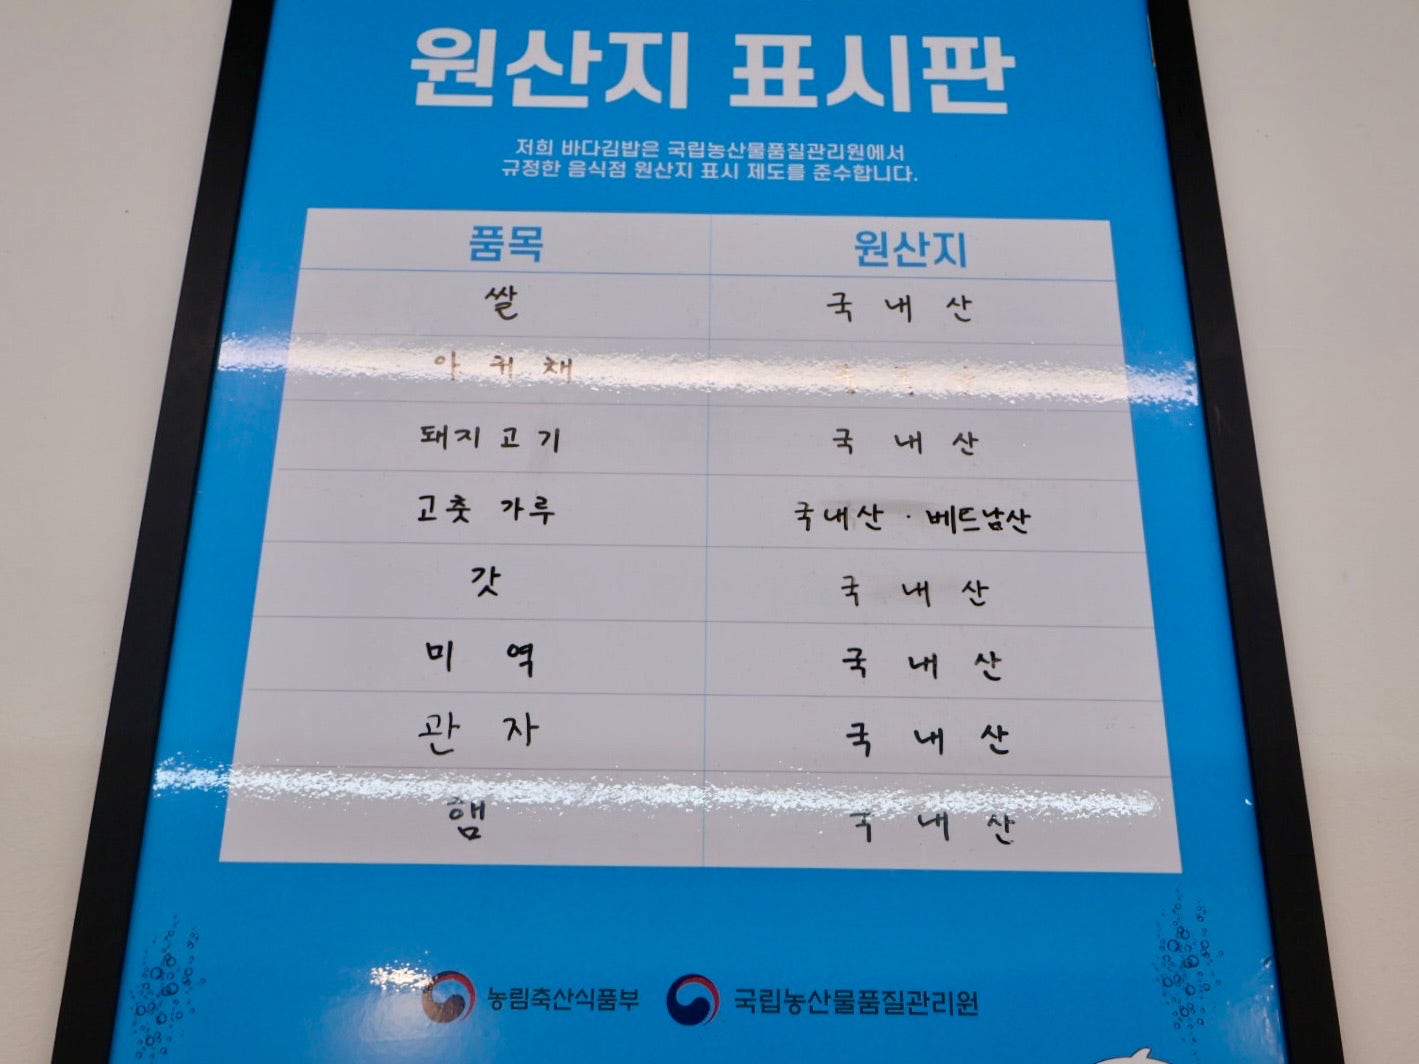 원산지 표시판
저희 바다김밥은 국립농산물품질관리원에서
규정한 음식점 원산지 표시 제도를 준수합니다.
품목 원산지
쌀 국내산
아귀채
돼지고기 국내산
고춧가루 국내산 · 베트남산
갓 국내산
미역 국내산
관자 국내산
햄 국내산
농림축산식품부 국립농산물품질관리원